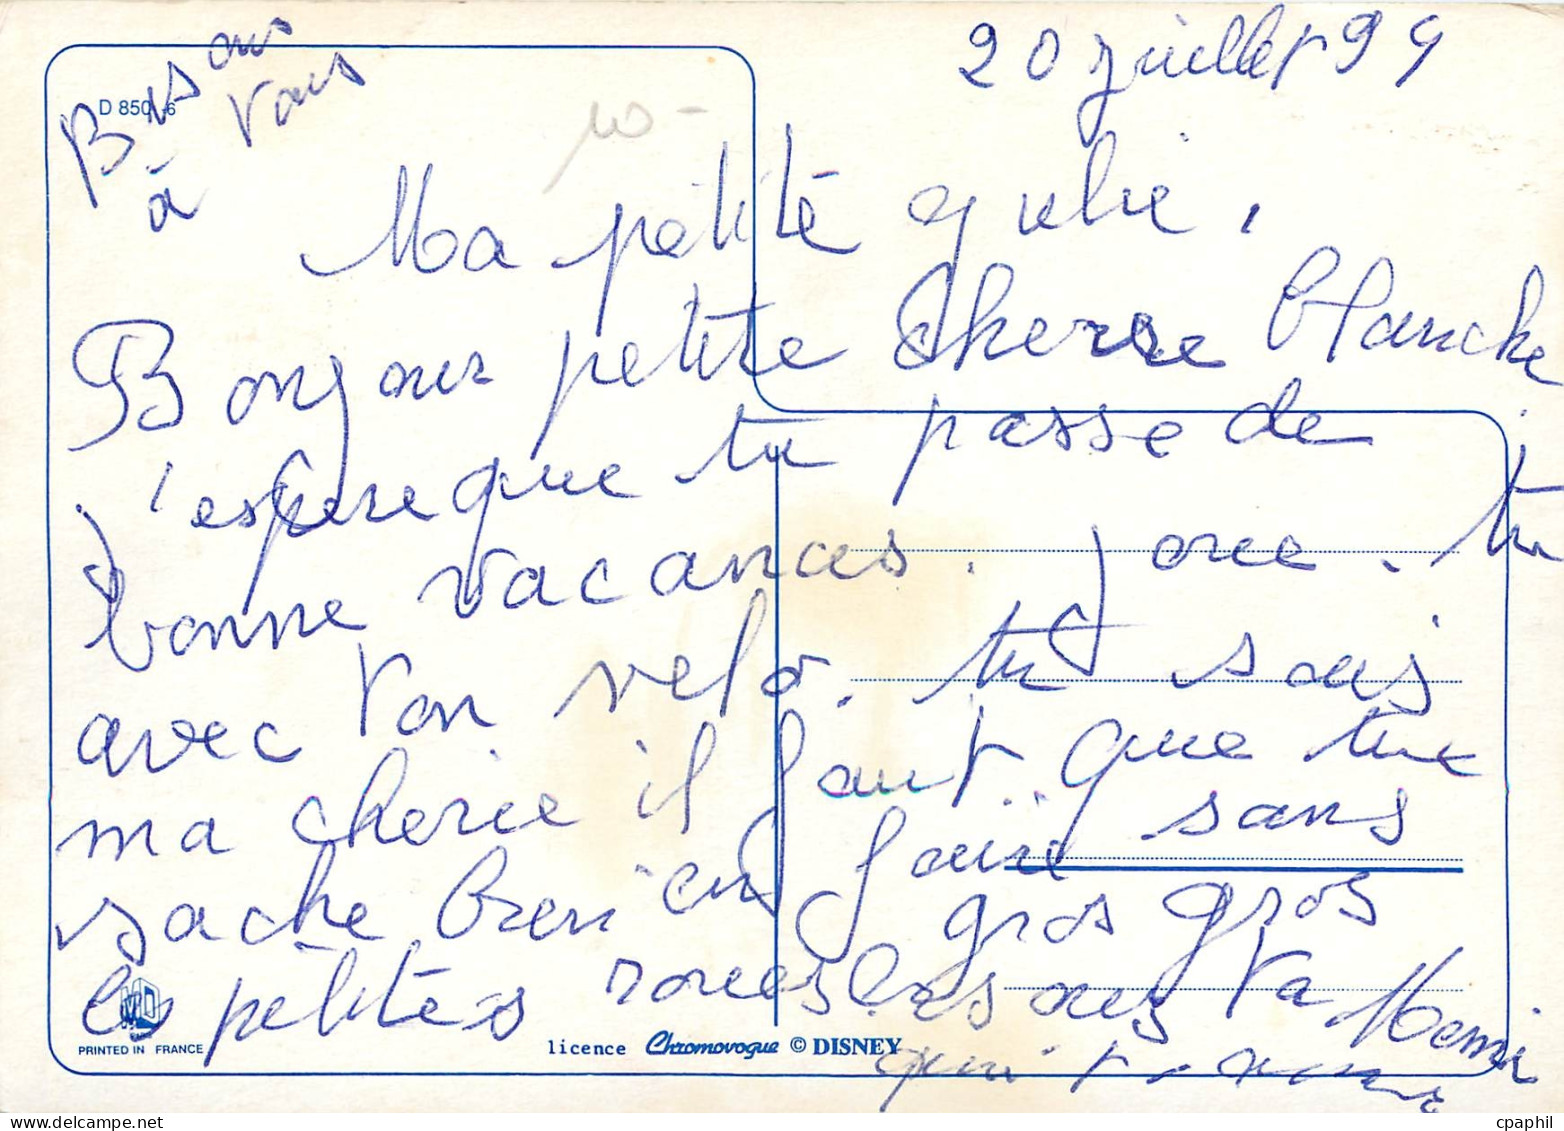 20 juillet 99
Bisous
à vous
D 850 -6
10-
Ma pétité julie.
Bonjour petite Cherie blanche
j'espere que tu passe de
bonne vacances. joue. tu
avec ton velo. tu sais
ma cherie il faut que tu
sache bien en faire sans
les pétités roues gros gros
bisous ta Memi
qui t'aime
PRINTED IN FRANCE
licence Chromovogue © DISNEY
cpaphil
delcampe.net